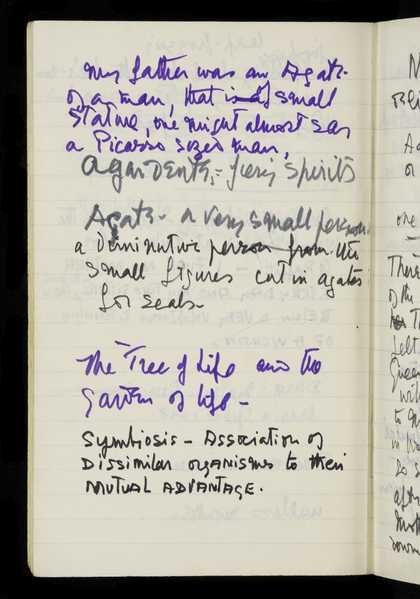 my father was an Agate
of a man, that is of small
Stature, one might almost say
a Picasso sized man,
agardente, = fiery spirits
Agate - a very small person
a Diminutive person from the
small figures cut in agates
for seals
The Tree of Life and the
Garden of life -
Symbiosis - Association of
Dissimilar organisms to their
MUTUAL ADVANTAGE.